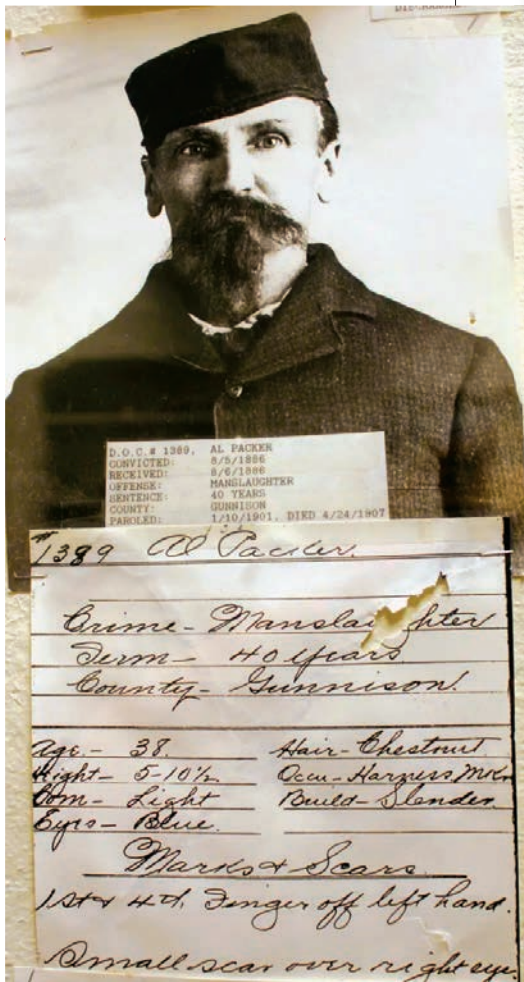 D.O.C.# 1389, AL PACKER
CONVICTED: 8/5/1886
RECEIVED: 8/6/1886
OFFENSE: MANSLAUGHTER
SENTENCE: 40 YEARS
COUNTY: GUNNISON
PAROLED: 1/10/1901, DIED 4/24/1907
#1389 Al Packer.
Crime- Manslaughter
Term- 40 years
County- Gunnison.
Age- 38. Hair- Chestnut
Hight- 5-10½ Occu- Harness Mkr
Com- Light Build- Slender
Eyes- Blue.
Marks & Scars
1st & 4th Finger off left hand.
Small scar over right eye.